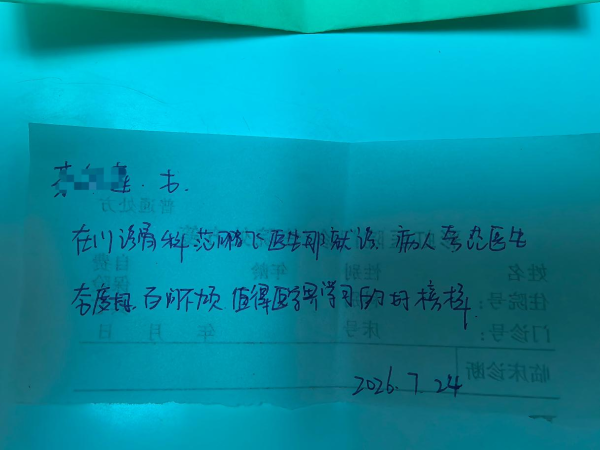 书.
在门诊骨科范鹏飞医生那就诊 病人夸范医生
态度好 百问不烦 值得医学界学习的的榜样
2026.7.24
普通处方
姓名
性别
年龄
自费
住院号:
门诊号:
床号
年 月 日
临床诊断